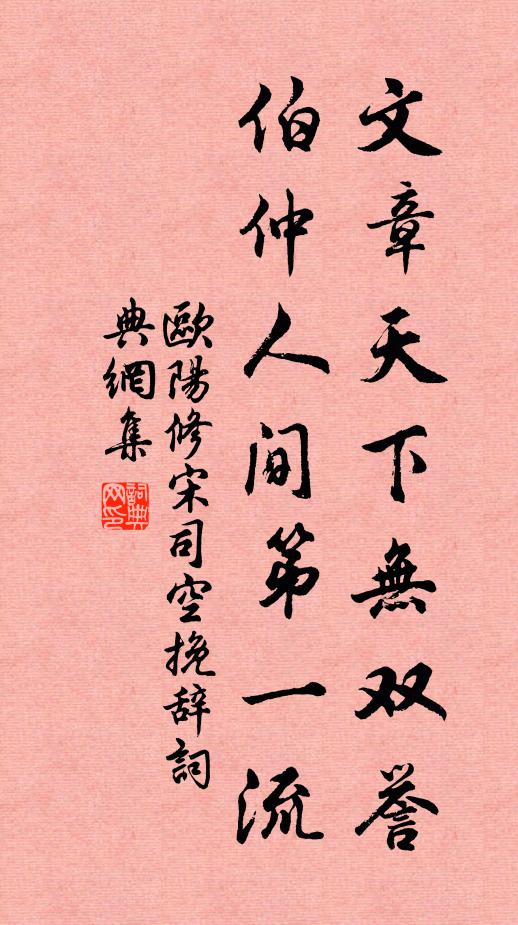 文章天下無双誉
伯仲人间第一流
歐陽修宋司空挽辞詞
典網集
詞典网印